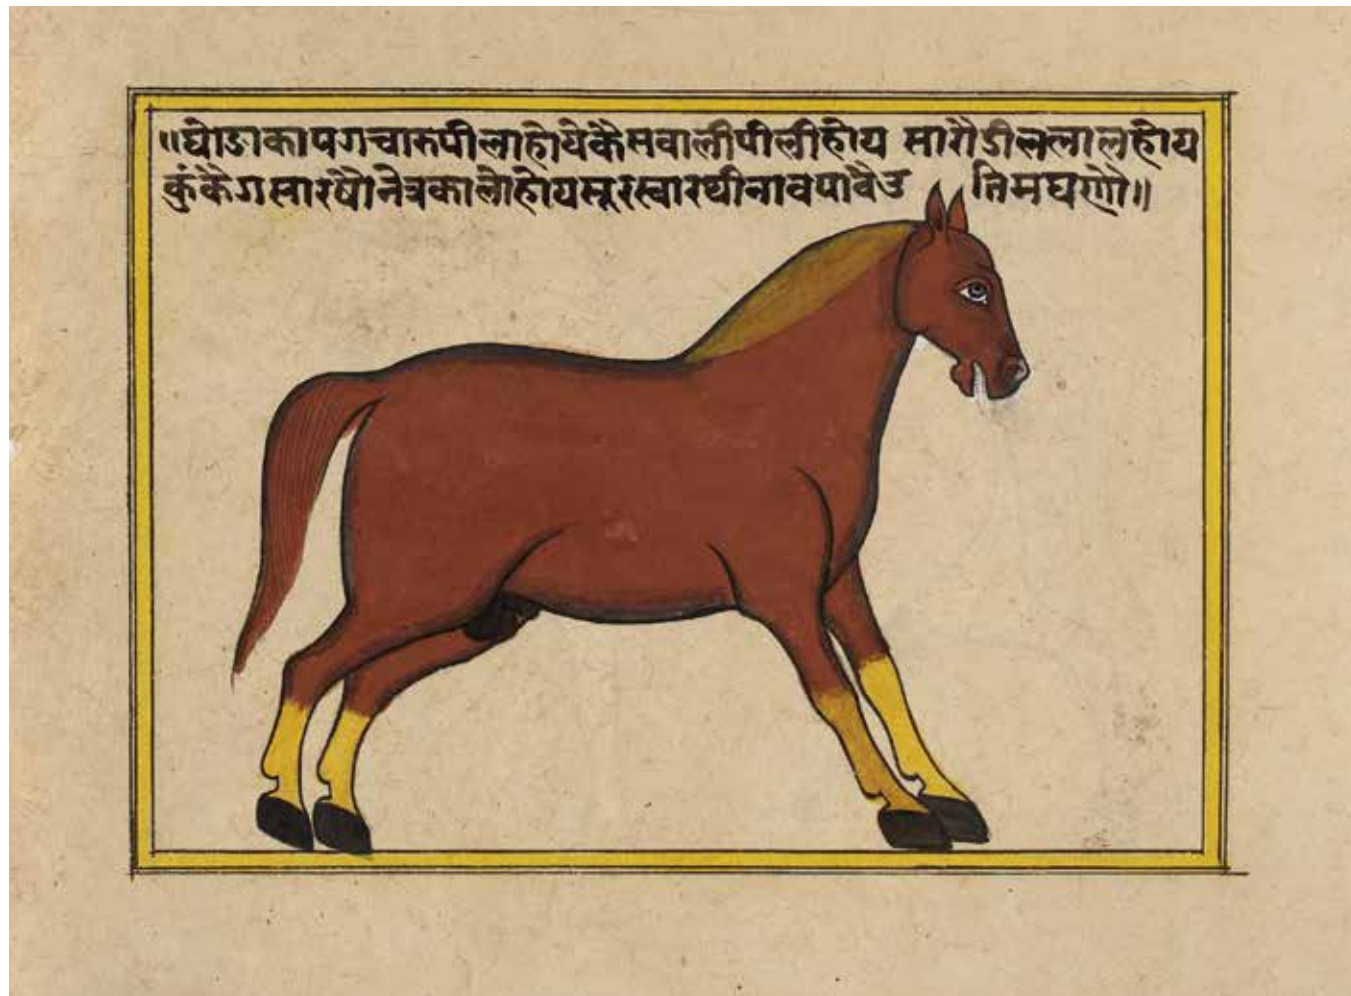 ॥घोडाकापगचारुपीलाहोयेकैसवालीपीलीहोय सारौडीललालहोय
कुंकैगसारषौनेत्रकालोहोयसूरस्वारथीनावपावैउ तिमघणौ॥